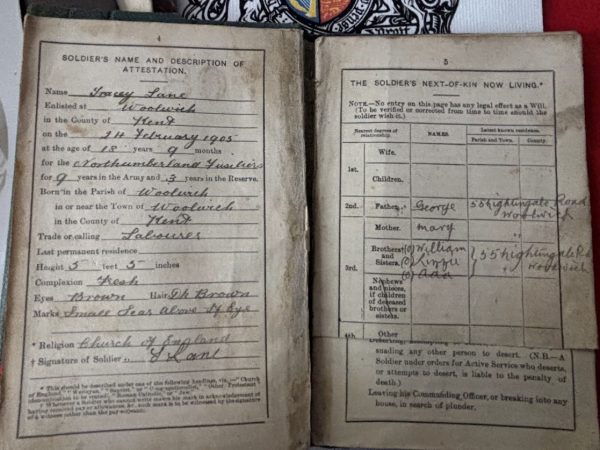 4
SOLDIER'S NAME AND DESCRIPTION OF
ATTESTATION.
Name Tracey Lane
Enlisted at Woolwich
in the County of Kent
on the 24 February 1905
at the age of 18 years 9 months.
for the Northumberland Fusiliers
for 9 years in the Army and 3 years in the Reserve.
Born in the Parish of Woolwich
in or near the Town of Woolwich
in the County of Kent
Trade or calling Labourer
Last permanent residence
Height 5 feet 5 inches
Complexion Fresh
Eyes Brown Hair Brown
Marks Small Scar Above Eye
* Religion Church of England
† Signature of Soldier Lane
* This should be described under one of the following headings, viz.:—"Church
of England," "Wesleyan," "Baptist," or "Congregationalist," "Other Protestant
(denomination to be stated)," "Roman Catholic," or "Jew."
† Whenever a Soldier who cannot write makes his mark in acknowledgment of
having received pay or allowances, &c., such mark is to be witnessed by the signature
of a witness rather than the paymaster.
5
THE SOLDIER'S NEXT-OF-KIN NOW LIVING.*
NOTE.—No entry on this page has any legal effect as a Will.
(To be verified or corrected from time to time should the
soldier wish it.)
Nearest degrees of relationship. NAMES. Latest known residence.
Parish and Town. County.
1st. Wife.
Children.
2nd. Father. George 55 Nightingale Road
Woolwich
Mother. Mary "
3rd. Brothers and Sisters. (0) William 55 Nightingale Rd
(0) Lizzie Woolwich
(0) Ada
Nephews
and nieces,
if children
of deceased
brothers or
sisters.
4th. Other
suading any other person to desert. (N.B.—A
Soldier under orders for Active Service who deserts,
or attempts to desert, is liable to the penalty of
death.)
Leaving his Commanding Officer, or breaking into any
house, in search of plunder.